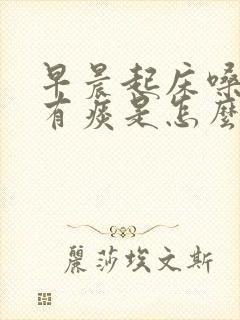 早晨起床嗓
有痰是怎麼
麗莎埃文斯